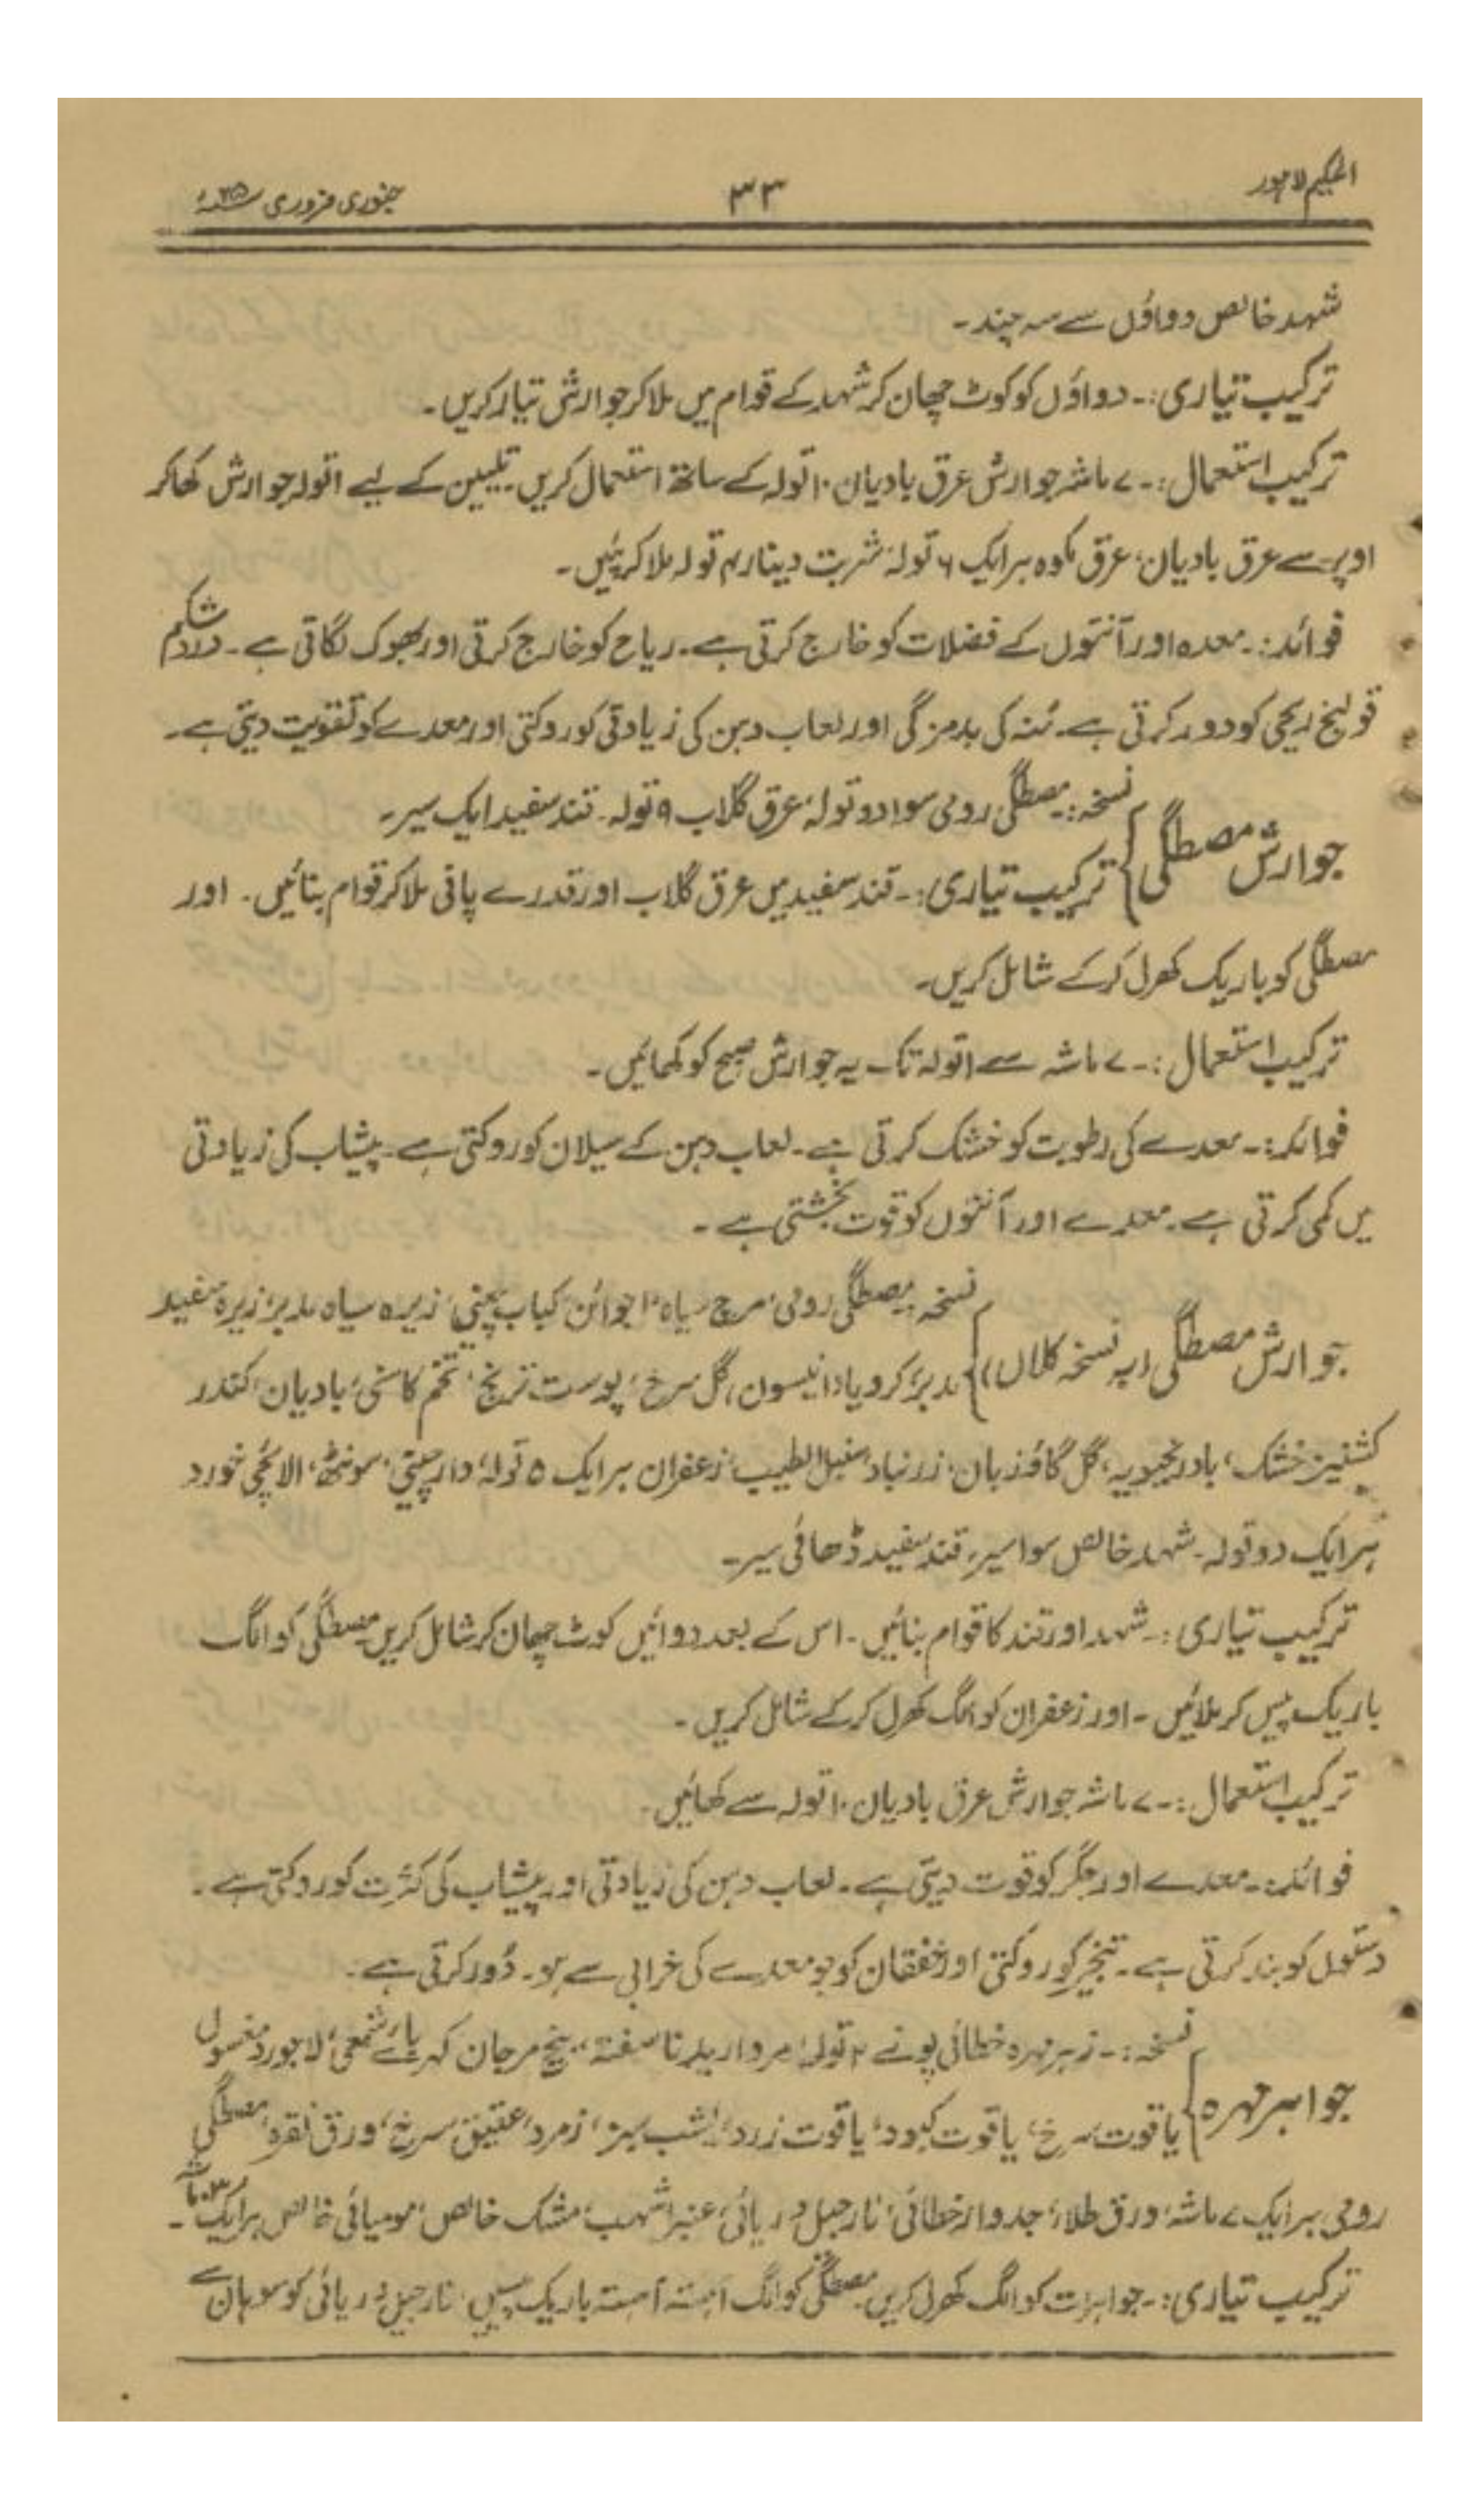 الحکیم لاہور
۳۳
جنوری فروری ۳۵ء
شہد خالص دواؤں سے سہ چند۔
ترکیب تیاری:۔ دواؤں کو کوٹ چھان کر شہد کے قوام میں ملا کر جوارش تیار کریں۔
ترکیب استعمال:۔ ۷ ماشہ جوارش عرق بادیان ۱۰ تولہ کے ساتھ استعمال کریں تلیین کے لیے ۱ تولہ جوارش کھا کر
اوپر سے عرق بادیان، عرق مکوہ ہر ایک ۶ تولہ، شربت دینار ۴ تولہ ملا کر پئیں۔
فوائد:۔ معدہ اور آنتوں کے فضلات کو خارج کرتی ہے۔ ریاح کو خارج کرتی اور بھوک لگاتی ہے۔ درد شکم
قولنج ریحی کو دور کرتی ہے۔ مُنہ کی بدمزگی اور لعاب دہن کی زیادتی کو روکتی اور معدے کو تقویت دیتی ہے۔
نسخہ:۔ مصطگی رومی سوا دو تولہ، عرق گلاب ۹ تولہ۔ قند سفید ایک سیر۔
جوارش مصطگی } ترکیب تیاری:۔ قند سفید میں عرق گلاب اور قدرے پانی ملا کر قوام بنائیں۔ اور
مصطگی کو باریک کھرل کر کے شامل کریں۔
ترکیب استعمال:۔ ۷ ماشہ سے ۱ تولہ تک یہ جوارش صبح کو کھائیں۔
فوائد:۔ معدے کی رطوبت کو خشک کرتی ہے۔ لعاب دہن کے سیلان کو روکتی ہے۔ پیشاب کی زیادتی
میں کمی کرتی ہے۔ معدے اور آنتوں کو قوت بخشتی ہے۔
نسخہ:۔ مصطگی رومی، مرچ سیاہ، اجوائن، کباب چینی، زیرہ سیاہ مدبر، زیرہ سفید
جوارش مصطگی (بہ نسخہ کلاں) } مدبر، کرویا، انیسون، گل سرخ، پوست ترنج، تخم کاسنی، بادیان، کندر
کشنیز خشک، بادرنجبویہ، گل گاؤزبان، زرنباد، سنبل الطیب، زعفران ہر ایک ۵ تولہ، دارچینی، سونٹھ، الائچی خورد
ہر ایک دو تولہ۔ شہد خالص سوا سیر، قند سفید ڈھائی سیر۔
ترکیب تیاری:۔ شہد اور قند کا قوام بنائیں۔ اس کے بعد دوائیں کوٹ چھان کر شامل کریں مصطگی کو الگ
باریک پیس کر ملائیں۔ اور زعفران کو الگ کھرل کر کے شامل کریں۔
ترکیب استعمال:۔ ۷ ماشہ جوارش عرق بادیان ۱۰ تولہ سے کھائیں۔
فوائد:۔ معدے اور جگر کو قوت دیتی ہے۔ لعاب دہن کی زیادتی اور پیشاب کی کثرت کو روکتی ہے۔
دستوں کو بند کرتی ہے۔ تبخیر کو روکتی اور خفقان کو جو معدے کی خرابی سے ہو۔ دُور کرتی ہے۔
نسخہ:۔ زہر مہرہ خطائی پونے ۲ تولہ، مروارید ناسفتہ، بیخ مرجان کہربائے شمعی، لاجورد مغسول
جواہر مہرہ } یاقوت سرخ، یاقوت کبود، یاقوت زرد، یشب سبز، زمرد، عقیق سرخ، ورق نقرہ، مصطگی
رومی ہر ایک ۷ ماشہ، ورق طلاء، جدوار خطائی، نارجیل دریائی، عنبر اشہب، مشک خالص، مومیائی خالص ہر ایک
ترکیب تیاری:۔ جواہرات کو الگ کھرل کریں مصطگی کو الگ آہستہ آہستہ باریک پیسیں، نارجیل دریائی کو سوہان سے